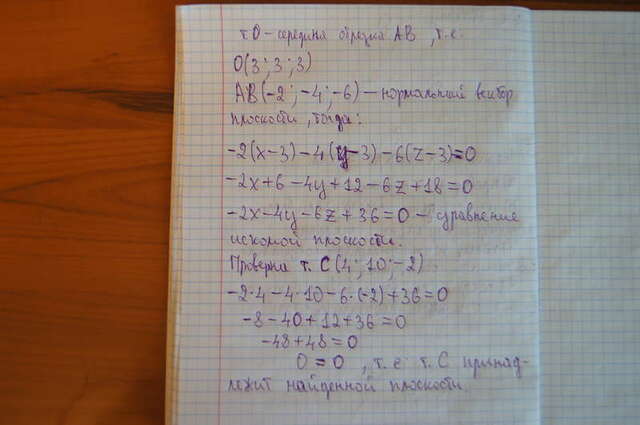 т. О – середина отрезка АВ, т.е.
О(3; 3; 3)
АВ(-2; -4; -6) – нормальный вектор
плоскости, тогда:
-2(x-3)-4(y-3)-6(z-3)=0
-2x+6-4y+12-6z+18=0
-2x-4y-6z+36=0 – уравнение
искомой плоскости.
Проверка т. С(4; 10; -2)
-2·4-4·10-6·(-2)+36=0
-8-40+12+36=0
-48+48=0
0=0, т.е. т. С принад-
лежит найденной плоскости.